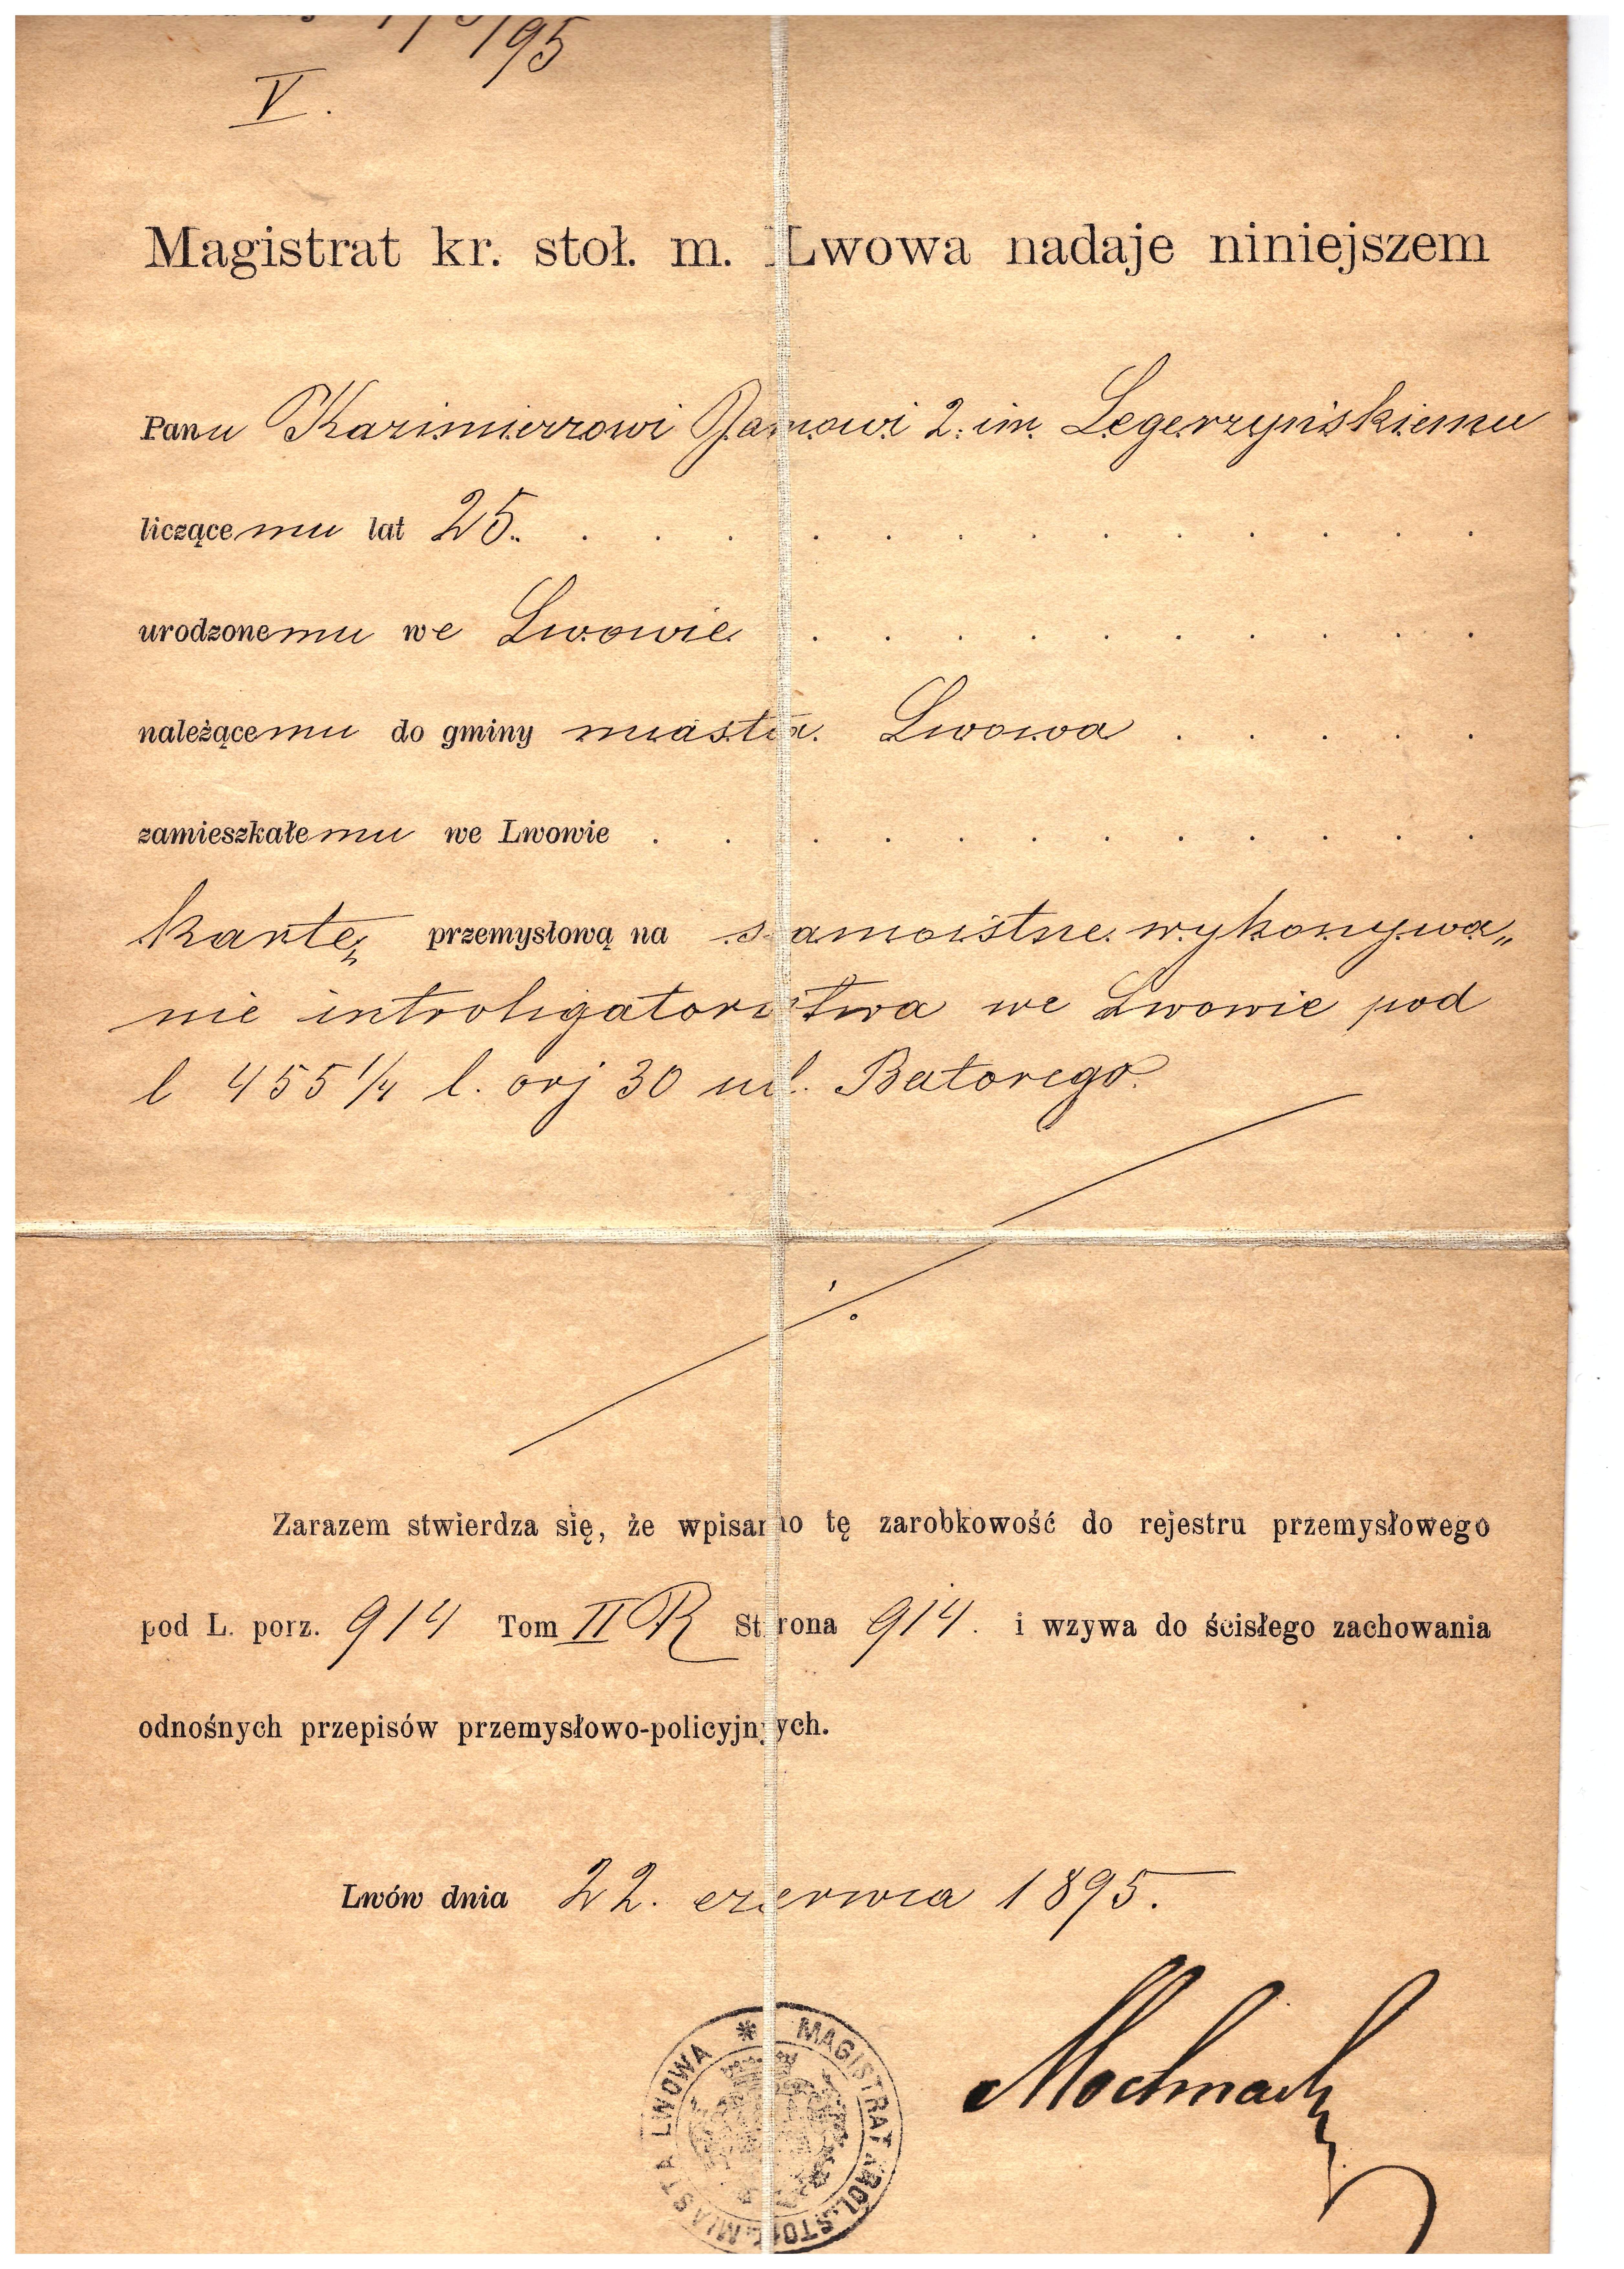 /95
V.
Magistrat kr. stoł. m. Lwowa nadaje niniejszem
Panu Kazimierzowi Janowi 2. im. Legerzyńskiemu
liczącemu lat 25. . . . . . . . . . . . . .
urodzonemu we Lwowie . . . . . . . . . .
należącemu do gminy miasta Lwowa . . . . .
zamieszkałemu we Lwowie . . . . . . . . . . . .
kartę przemysłową na samoistne wykonywa„
nie introligatorstwa we Lwowie pod
l 455 1/4 l. orj 30 ul. Batorego.
Zarazem stwierdza się, że wpisano tę zarobkowość do rejestru przemysłowego
pod L. porz. 914 Tom II R Strona 914. i wzywa do ścisłego zachowania
odnośnych przepisów przemysłowo-policyjnych.
Lwów dnia 22. czerwca 1895.
Mochnacki
* MAGISTRAT KRÓL. STOŁ. MIASTA LWOWA